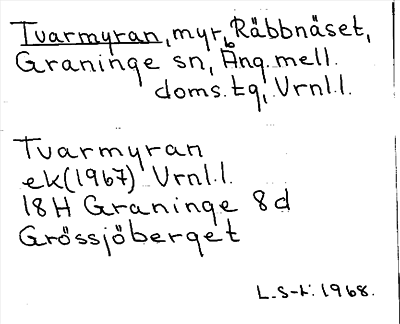 Tvarmyran, myr, Räbbnäset,
Graninge sn, Ång.mell.
doms.tg, Vrnl.l.
Tvarmyran
ek(1967) Vrnl.l.
18H Graninge 8d
Grössjöberget
L.S-k. 1968.